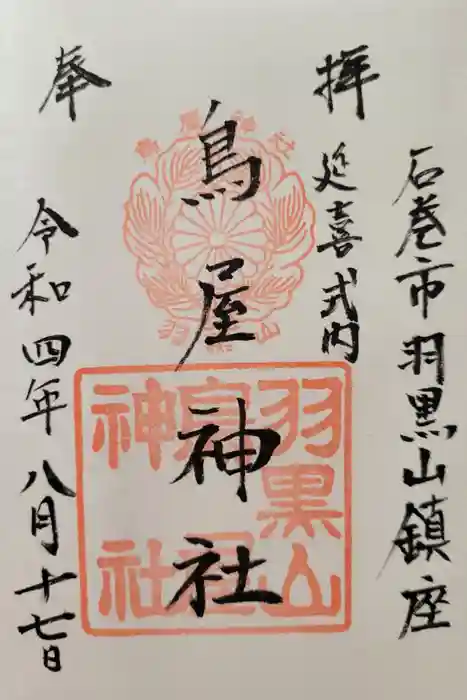 石巻市羽黒山鎮座
拝
延喜式内
鳥屋神社
奉
令和四年八月十七日
羽黒山
神社